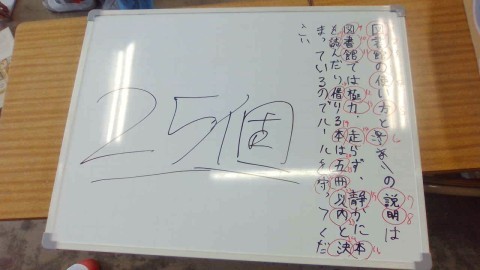 図書館の使い方と の説明は
図書館では極力、走らず、静かに本
を読んだり、借りる本は五冊以内と決
まっているのでルールを守ってくだ
さい
25個